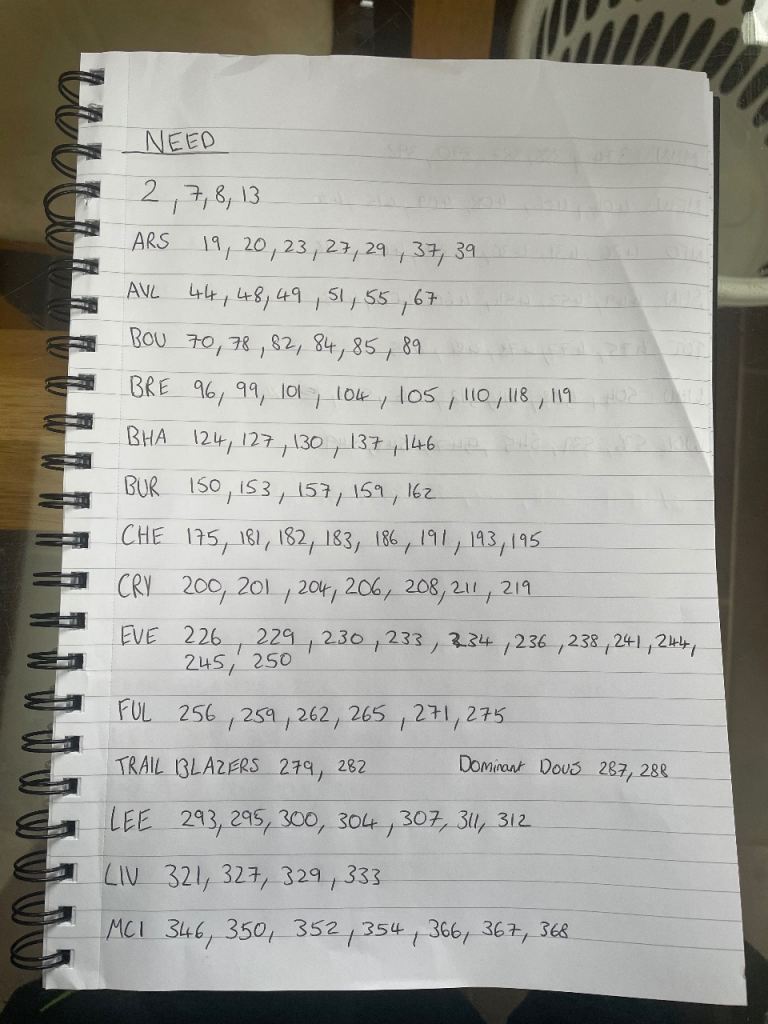 NEED
2, 7, 8, 13
ARS 19, 20, 23, 27, 29, 37, 39
AVL 44, 48, 49, 51, 55, 67
BOU 70, 78, 82, 84, 85, 89
BRE 96, 99, 101, 104, 105, 110, 118, 119
BHA 124, 127, 130, 137, 146
BUR 150, 153, 157, 159, 162
CHE 175, 181, 182, 183, 186, 191, 193, 195
CRY 200, 201, 204, 206, 208, 211, 219
EVE 226, 229, 230, 233, 234, 236, 238, 241, 244,
245, 250
FUL 256, 259, 262, 265, 271, 275
TRAIL BLAZERS 279, 282 Dominant Douos 287, 288
LEE 293, 295, 300, 304, 307, 311, 312
LIV 321, 327, 329, 333
MCI 346, 350, 352, 354, 366, 367, 368